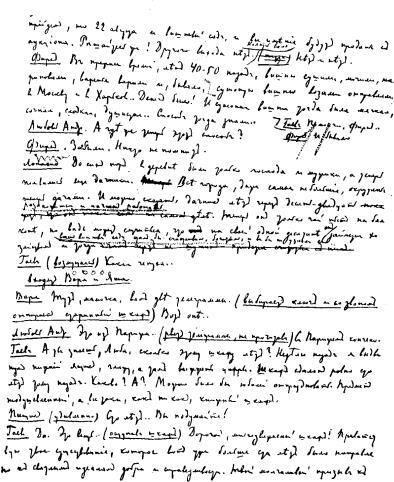 что 22 августа и вишневый сад, и будут проданы с
аукциона. Решайтесь! Другого выхода нет, Нет и нет.
Фирс. В прежнее время, лет 40-50 назад, вишню сушили, мочили, ма-
риновали, варенье варили и, бывало, сушеную вишню возами отправляли
в Москву и в Харьков.. Денег было! И сушеная вишня тогда была мягкая,
сочная, сладкая, душистая.. Способ тогда знали.. Гаев. Помолчи, Фирс..
Любовь Анд. А где же теперь этот способ? Фирс. И бывало
Фирс. Забыли. Никто не помнит.
Лопахин До сих пор в деревне были только господа и мужики, а теперь
появились еще дачники. Все города, даже самые небольшие, окружены
теперь дачами. И можно сказать, дачник лет через двадцать
Теперь он только чай пьет на бал-
коне, но ведь может случиться, что на своей одной десятине он займется хо-
зяйством и тогда
Гаев (возмущаясь) Какая чепуха..
Входят Варя и Яша.
Варя Тут, мамочка, вам две телеграммы. (выбирает ключ и со звоном
отпирает старинный шкаф) Вот они.
Любовь Анд. Это из Парижа.. (рвет телеграммы, не прочитав) С Парижем кончено.
Гаев. А ты знаешь, Люба, сколько этому шкафу лет? Неделю назад я вы-
нул нижний ящик, гляжу, а там выжжены цифры. Шкаф сделан ровно сто
лет тому назад. Каково? А? Можно было бы юбилей отпраздновать. Предмет
неодушевленный, а все-таки, как ни как, книжный шкаф.
Пищик (удивленно) Сто лет.. Вы подумайте!
Гаев Да. Это вещь.. (ощупав шкаф) Дорогой, многоуважаемый шкаф! Приветст-
вую твое существование, которое вот уже больше ста лет было направле-
но к светлым идеалам добра и справедливости. Твой молчаливый призыв к